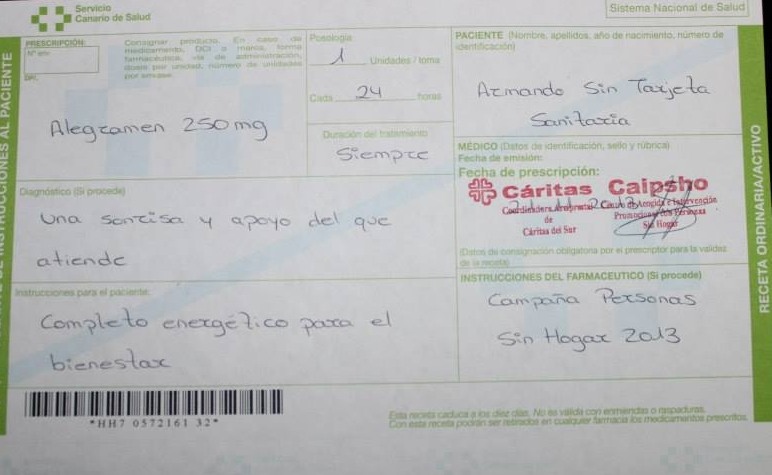 Servicio
Canario de Salud
Sistema Nacional de Salud
PRESCRIPCIÓN:
Consignar producto. En caso de
medicamento, DCI o marca, forma
farmacéutica, vía de administración,
dosis por unidad, número de unidades
por envase.
Alegramen 250 mg
Posología
1 Unidades / toma
Cada 24 horas
Duración del tratamiento
Siempre
PACIENTE (Nombre, apellidos, año de nacimiento, número de
identificación)
Armando Sin Tarjeta
Sanitaria
MÉDICO (Datos de identificación, sello y rúbrica)
Fecha de emisión:
Fecha de prescripción:
Cáritas Caipsho
de
Cáritas del Sur
Sin Hogar
(Datos de consignación obligatoria por el prescriptor para la validez
de la receta)
Diagnóstico (Si procede)
Una sonrisa y apoyo del que
atiende
Instrucciones para el paciente:
Completo energético para el
bienestar
INSTRUCCIONES DEL FARMACEUTICO (Si procede)
Campaña Personas
Sin Hogar 2013
*HH7 0572161 32*
Esta receta caduca a los diez días. No es válida con enmiendas o raspaduras.
Con esta receta podrán ser retirados en cualquier farmacia los medicamentos prescritos.
INSTRUCCIONES AL PACIENTE
RECETA ORDINARIA/ACTIVO